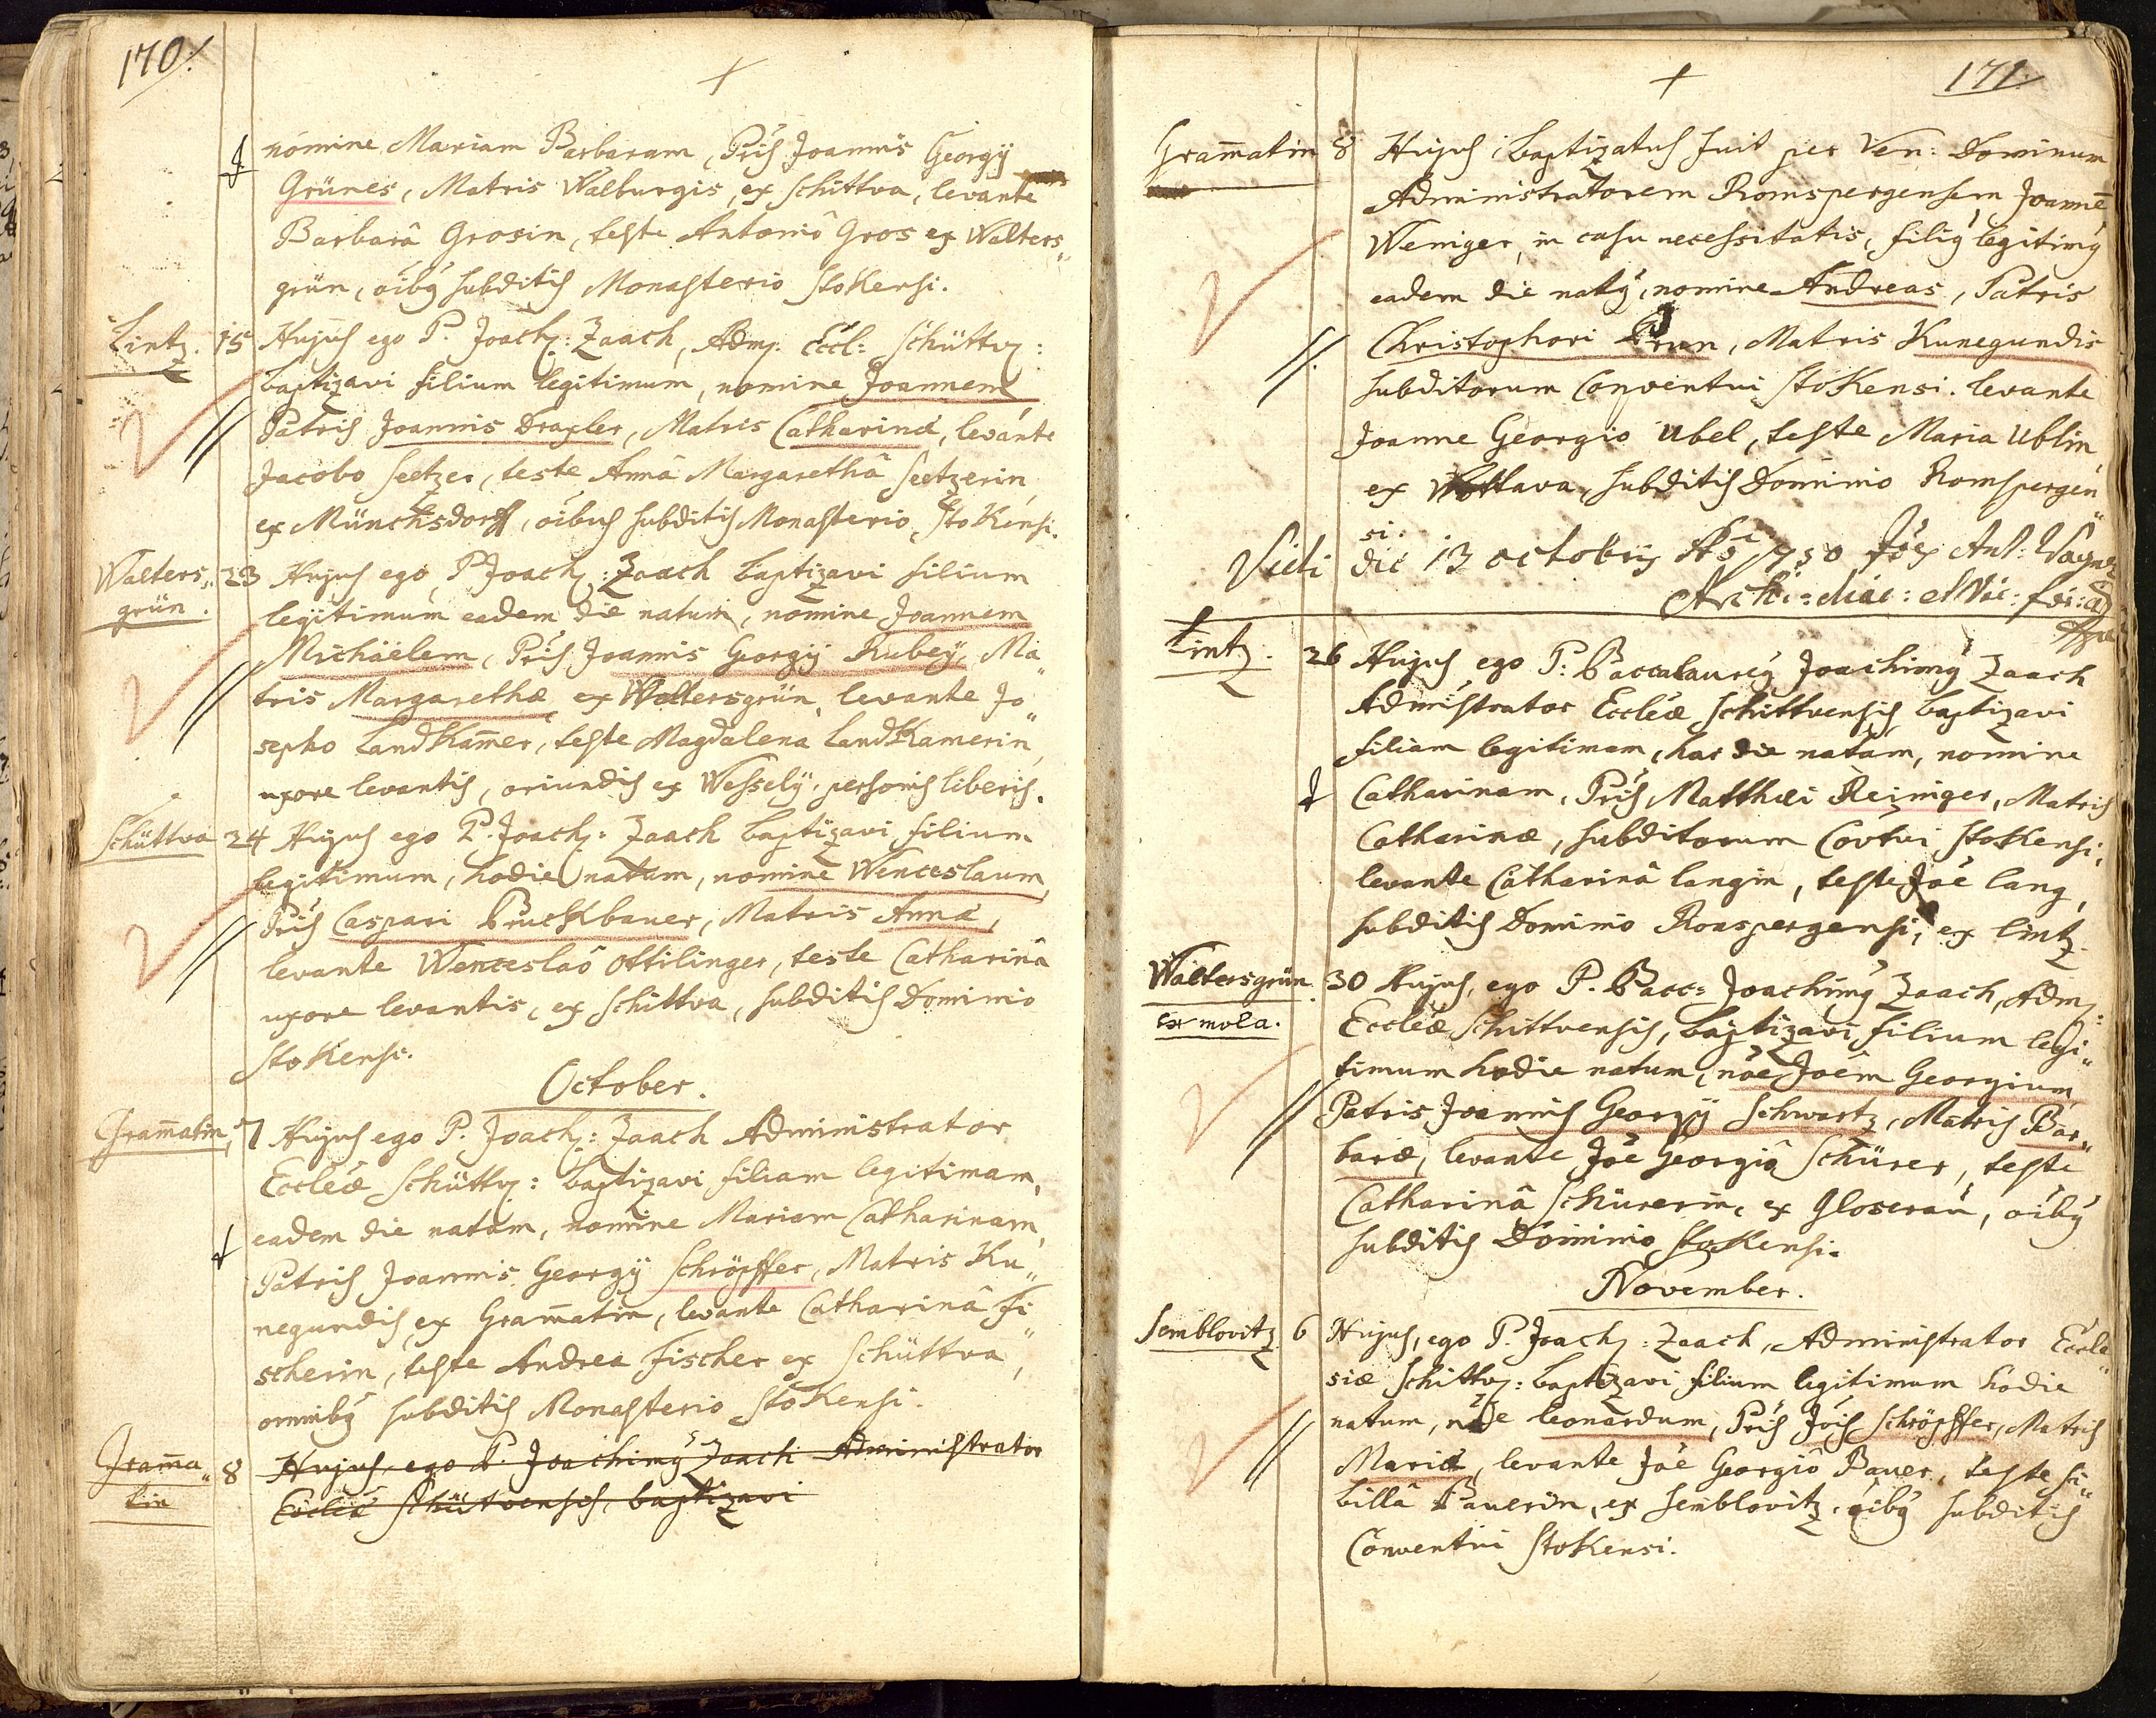 170.
nomine Mariam Barbaram, Pris Joannis Georgÿ
Grünes, Matris Walburgis, ex Schüttva, levante
Barbarâ Grosin, teste Antoniô Gros ex Walters„
grün, oibg subditis Monasterio Stokensi.
Lintz. 15 Hujus ego P. Joach: Zaach, Adm: Eccl: Schüttv:
baptizavi filium legitimum, nomine Joannem
Patris Joannis Draxler, Matris Catharinæ, levante
Jacobo Seetzer, teste Annâ Margarethâ Seetzerin,
ex Münchsdorff, oibus subditis Monasterio Stokensi.
Walters„ 23 Hujus ego P Joach: Zaach baptizavi filium
grün. legitimum eadem die natum, nomine Joannem
Michäelem, Pris Joannis Georgÿ Rubeÿ, Ma„
tris Margarethæ ex Waltersgrün, levante Jo„
sepho Landkam̄er, teste Magdalena Landkamerin,
uxore levantis, oriundis ex Wessely, personis liberis.
Schüttva 24 Hujus ego P. Joach: Zaach baptizavi filium
legitimum, hodie natum, nomine Wenceslaum,
Pris Caspari Pruckbauer, Matris Annæ,
levante Wenceslaô Ottilinger, teste Catharinâ
uxore levantis, ex Schüttva, subditis Dominio
Stokensi.
October.
Gram̄atin, 7 Hujus ego P. Joach: Zaach Administrator
Eccleæ Schüttv: baptizavi filiam legitimam,
eadem die natam, nomine Mariam Catharinam,
Patris Joannis Georgÿ Schröpffer, Matris Ku„
negundis, ex Gram̄atin, levante Catharinâ Fi„
scherin, teste Andrea Fischer ex Schüttva,
omnibg subditis Monasterio Stokensi.
Gram̄a„ 8 Hujus, ego P. Joachimg Zaach Administrator
tin Eccleæ Schüttvensis, baptizavi
171.
Gram̄atin 8 Hujus, baptizatus fuit per Ven: Dominum
Administratorem Romspergensem Joannē
Weniger, in casu necessitatis, filig legitimg
eadem die natg, nomine Andreas, Patris
Christophori, Matris Kunegundis
subditorum Conventui Stokensi. levante
Joanne Georgio Ubel, teste Maria Ublin,
ex Wottava, subditis Dominio Romspergen„
si.
Vidi die 13 octobris Aō 1730 Joēs Ant: Wagner
Lintz. 26 Hujus ego P: Baccalaureg Joachimg Zaach
Adm̄istrator Eccleæ Schüttvensis, baptizavi
filiam legitimam, hac die natam, nomine
Catharinam, Pris Matthæi Reiniger, Matris
Catharinæ, subditorum Covtui Stokensi,
levante Catharinâ Langin, teste Joê Lang,
subditis Dominio Ronspergensi, ex Lintz.
Waltersgrün. 30 Hujus, ego P. Bacc: Joachimg Zaach, Adm:
ex mola. Eccleæ Schüttvensis, baptizavi filium legi„
timum hodie natum, nōe Joēm Georgium
Patris Joannis Georgÿ Schwartz, Matris Bar„
baræ, levante Joê Georgiô Schürer, teste
Catharinâ Schürerin, ex Gloserau, oibg
subditis Dominio Stokensi.
November.
Semblovitz 6 Hujus, ego P. Joach: Zaach, Administrator Eccle„
siæ Schüttv: baptizavi filium legitimum hodie
natum, nōe Leonardum, Pris Jois Schröpffer, Matris
Mariæ, levante Joê Georgiô Pauer, teste Si„
billâ Pauerin, ex Semblovitz, oibg subditis
Conventui Stokensi.